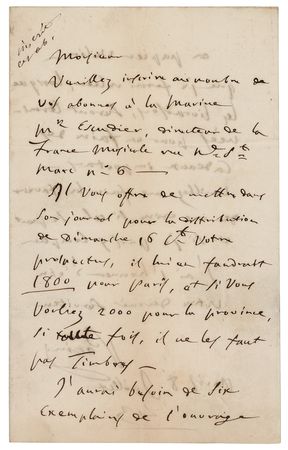 Monsieur
Veuillez inscrire au nombre de
vos abonnés à la Marine
Mr Escudier, directeur de la
France Musicale rue Nve St
Marc n° 6 —
Il vous offre de mettre dans
son journal pour la distribution
de Dimanche 16 Ct votre
prospectus, il lui en faudrait
1800 pour Paris, et si vous
vouliez 2000 pour la province,
si toute fois, il ne les faut
pas Timbrés —
J'aurai besoin de six
Exemplaires de l'ouvrage